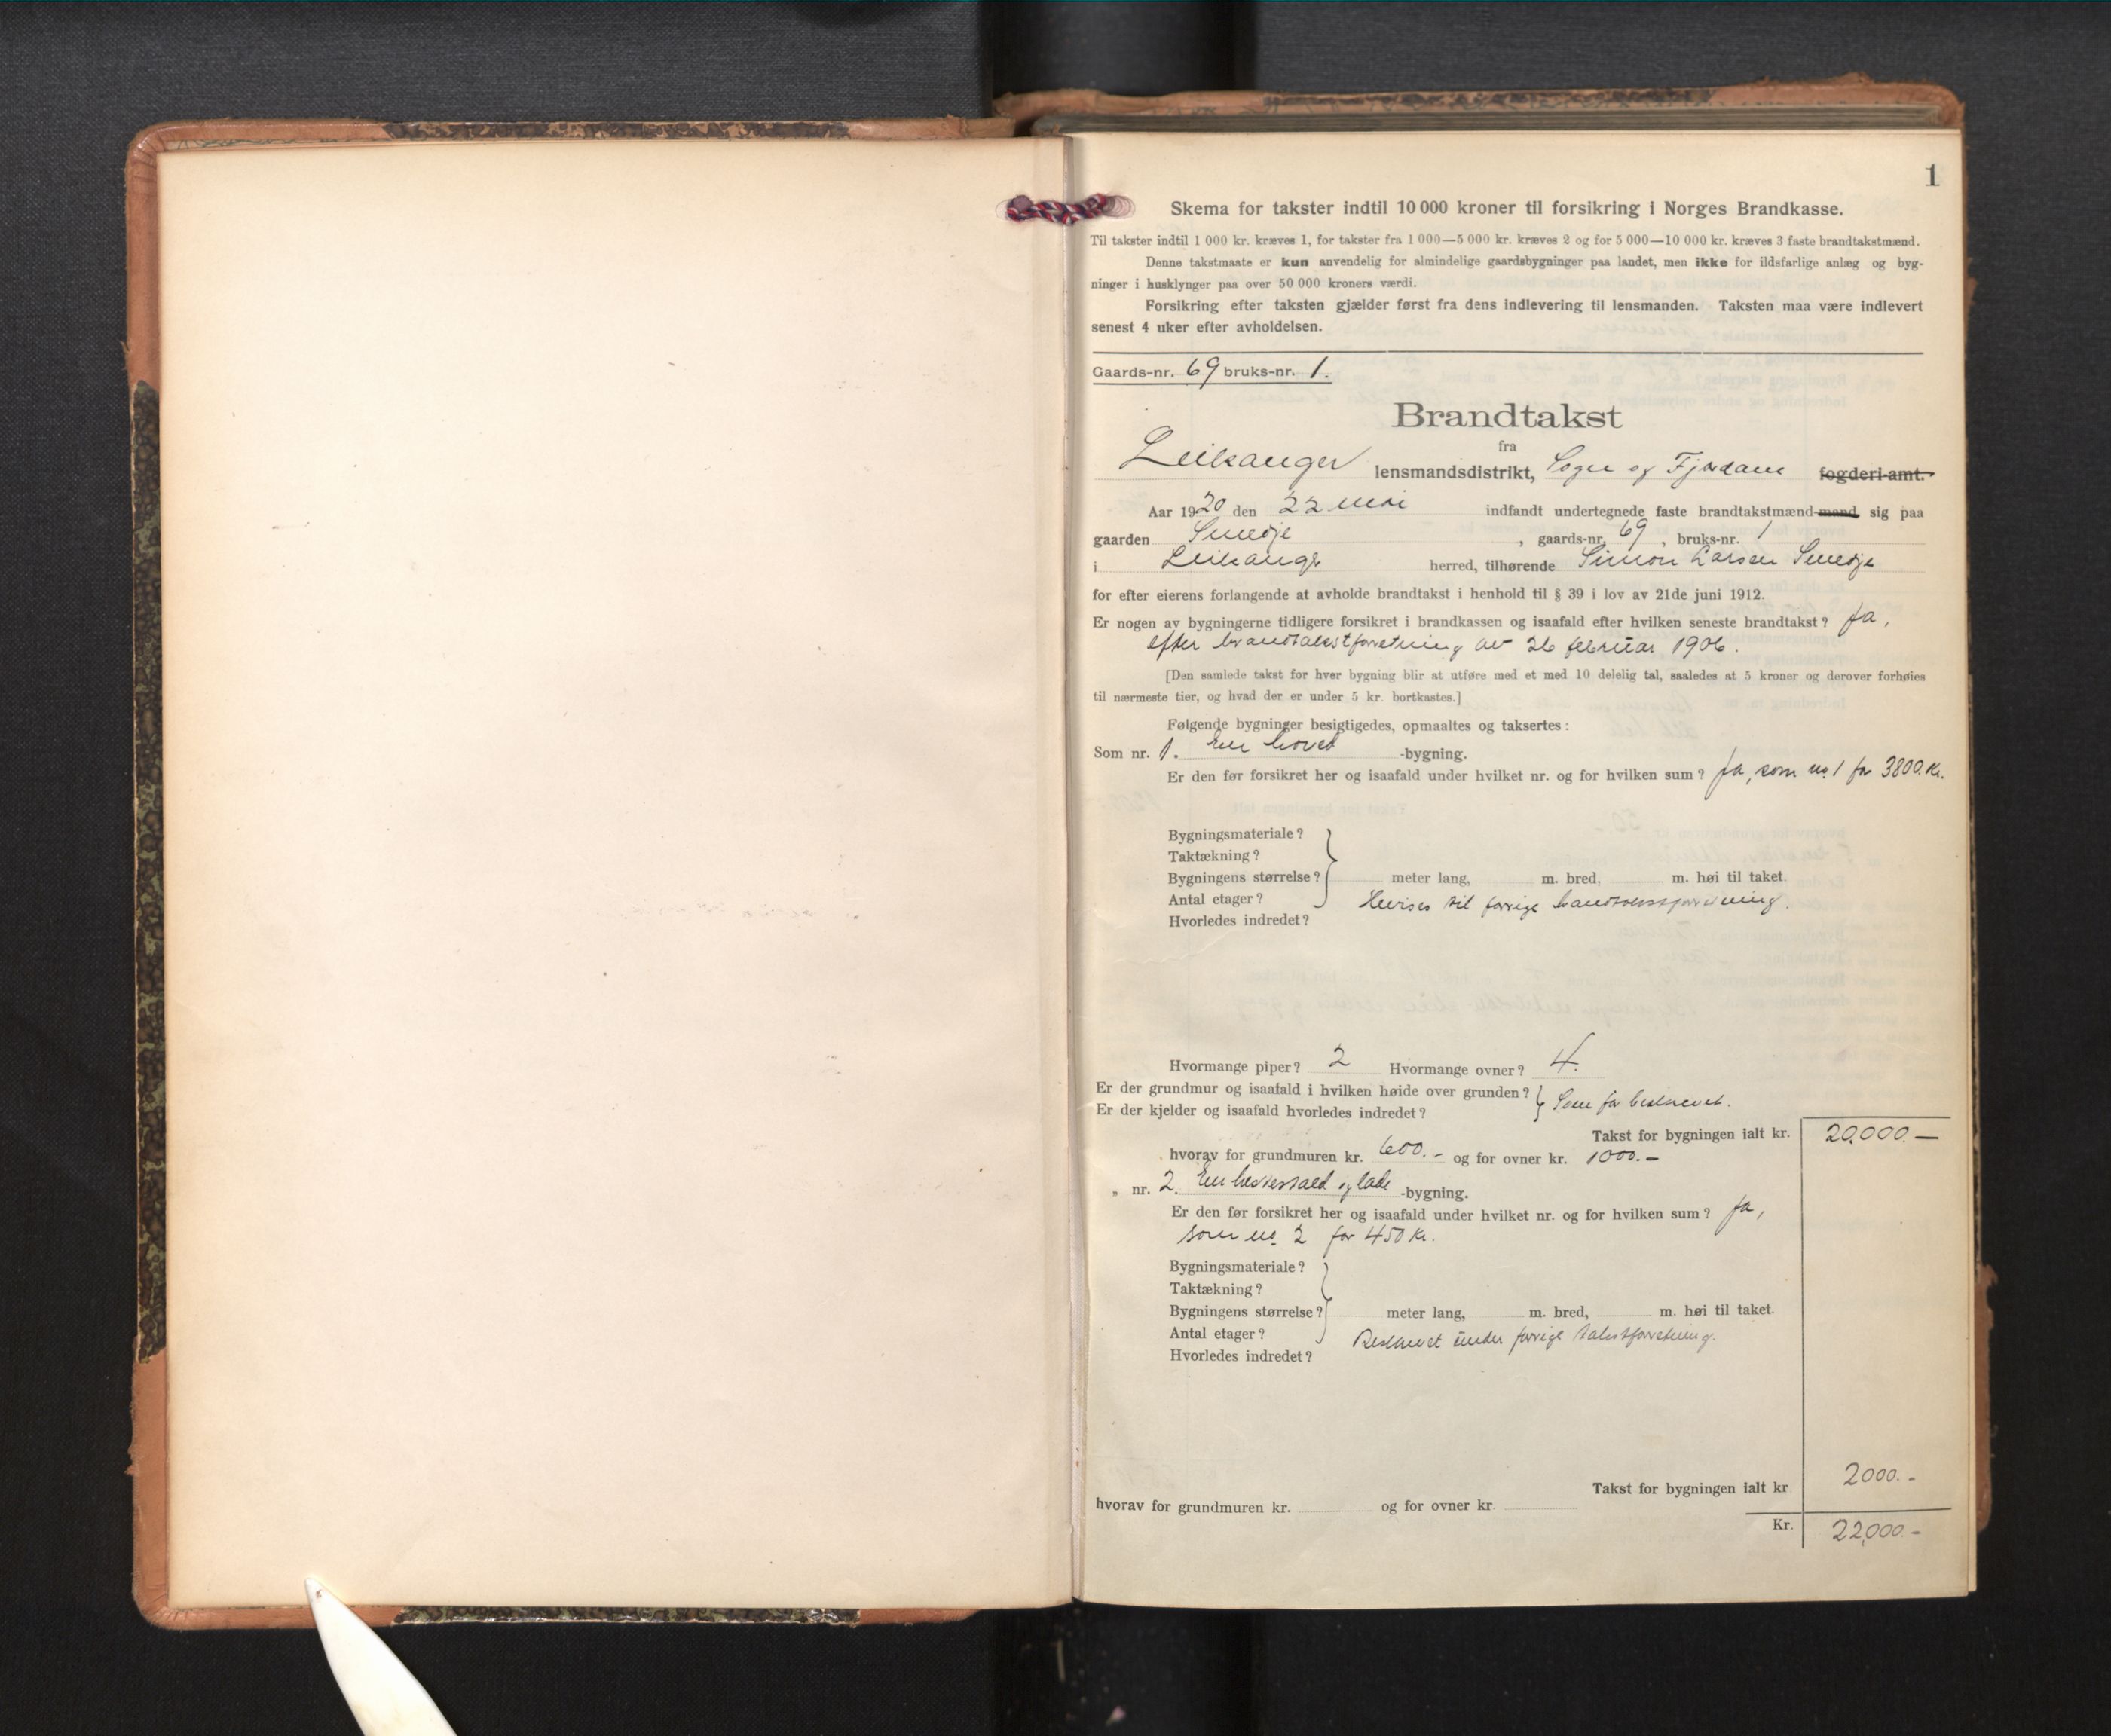 1
Skema for takster indtil 10 000 kroner til forsikring i Norges Brandkasse.
Til takster indtil 1 000 kr. kræves 1, for takster fra 1 000—5 000 kr. kræves 2 og for 5 000—10 000 kr. kræves 3 faste brandtakstmænd.
Denne takstmaate er kun anvendelig for almindelige gaardsbygninger paa landet, men ikke for ildsfarlige anlæg og byg-
ninger i husklynger paa over 50 000 kroners værdi.
Forsikring efter taksten gjælder først fra dens indlevering til lensmanden. Taksten maa være indlevert
senest 4 uker efter avholdelsen.
Gaards-nr. 69 bruks-nr. 1.
Brandtakst
fra
Leikanger lensmandsdistrikt, Sogn og Fjordane fogderi-amt.
Aar 1920 den 22 mai indfandt undertegnede faste brandtakstmænd-mand sig paa
gaarden Smedje, gaards-nr. 69, bruks-nr. 1
i Leikanger herred, tilhørende Simon Larsen Smedje
for efter eierens forlangende at avholde brandtakst i henhold til § 39 i lov av 21de juni 1912.
Er nogen av bygningerne tidligere forsikret i brandkassen og isaafald efter hvilken seneste brandtakst? Ja,
efter brandtakstforretning av 26 februar 1906.
[Den samlede takst for hver bygning blir at utføre med et med 10 delelig tal, saaledes at 5 kroner og derover forhøies
til nærmeste tier, og hvad der er under 5 kr. bortkastes.]
Følgende bygninger besigtigedes, opmaaltes og taksertes:
Som nr. 1. En hoved -bygning.
Er den før forsikret her og isaafald under hvilket nr. og for hvilken sum? Ja, som no. 1 for 3800. Kr.
Bygningsmateriale?
Taktækning?
Bygningens størrelse? meter lang, m. bred, m. høi til taket.
Antal etager? Henvises til forrige brandtakstforretning.
Hvorledes indredet?
Hvormange piper? 2 Hvormange ovner? 4.
Er der grundmur og isaafald i hvilken høide over grunden?
Er der kjelder og isaafald hvorledes indredet? Som før beskrevet.
Takst for bygningen ialt kr. 20.000.—
hvorav for grundmuren kr. 600.- og for ovner kr. 1000.-
„ nr. 2. En hestestald og lade -bygning.
Er den før forsikret her og isaafald under hvilket nr. og for hvilken sum? Ja,
som no 2 for 450 Kr.
Bygningsmateriale?
Taktækning?
Bygningens størrelse? meter lang, m. bred, m. høi til taket.
Antal etager? Beskrevet under forrige takstforretning.
Hvorledes indredet?
Takst for bygningen ialt kr 2000.-
hvorav for grundmuren kr. og for ovner kr.
Kr. 22,000.-